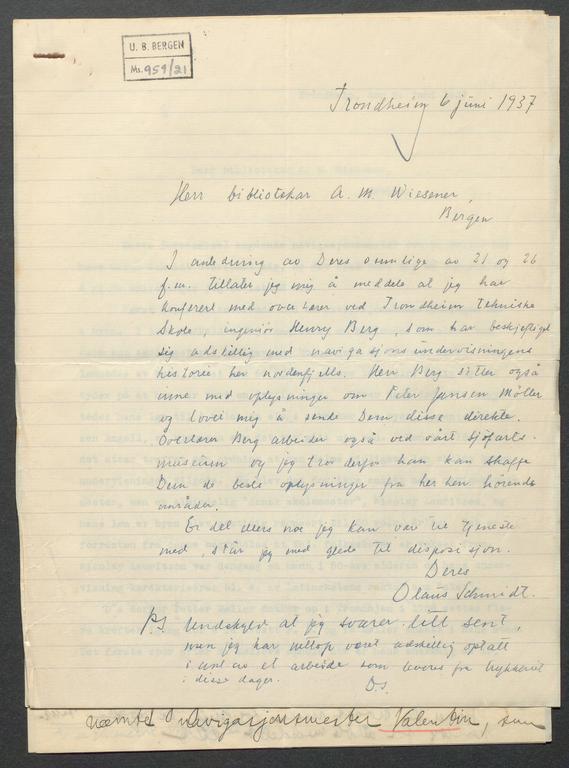 U. B. BERGEN
Ms. 959/21
Trondheim 6 juni 1937
Herr bibliotekar A. M. Wiesener,
Bergen
I anledning av Deres ærede av 21 og 26
f.m. tillater jeg mig å meddele at jeg har
konferert med overlærer ved Trondheim tekniske
skole, ingeniør Henry Berg, som har beskjeftiget
sig adskillig med navigasjonsundervisningens
historie her nordenfjells. Herr Berg sitter også
inne med oplysninger om Peter Jansen Möller
og lovet mig å sende Dem disse direkte.
Overlærer Berg arbeider også ved vårt sjöfarts-
museum og jeg tror derfor han kan skaffe
Dem de beste oplysninger fra her hen hörende
områder.
Er det ellers noe jeg kan være til tjeneste
med, står jeg med glede til disposisjon.
Deres
Olaus Schmidt.
P.S. Undskyld at jeg svarer litt sent,
men jeg har nettop været adskillig optatt
i et arbeide som leveres fra trykkeriet
i disse dager.
D.s.
nævnte navigasjonsmester Valentin, som